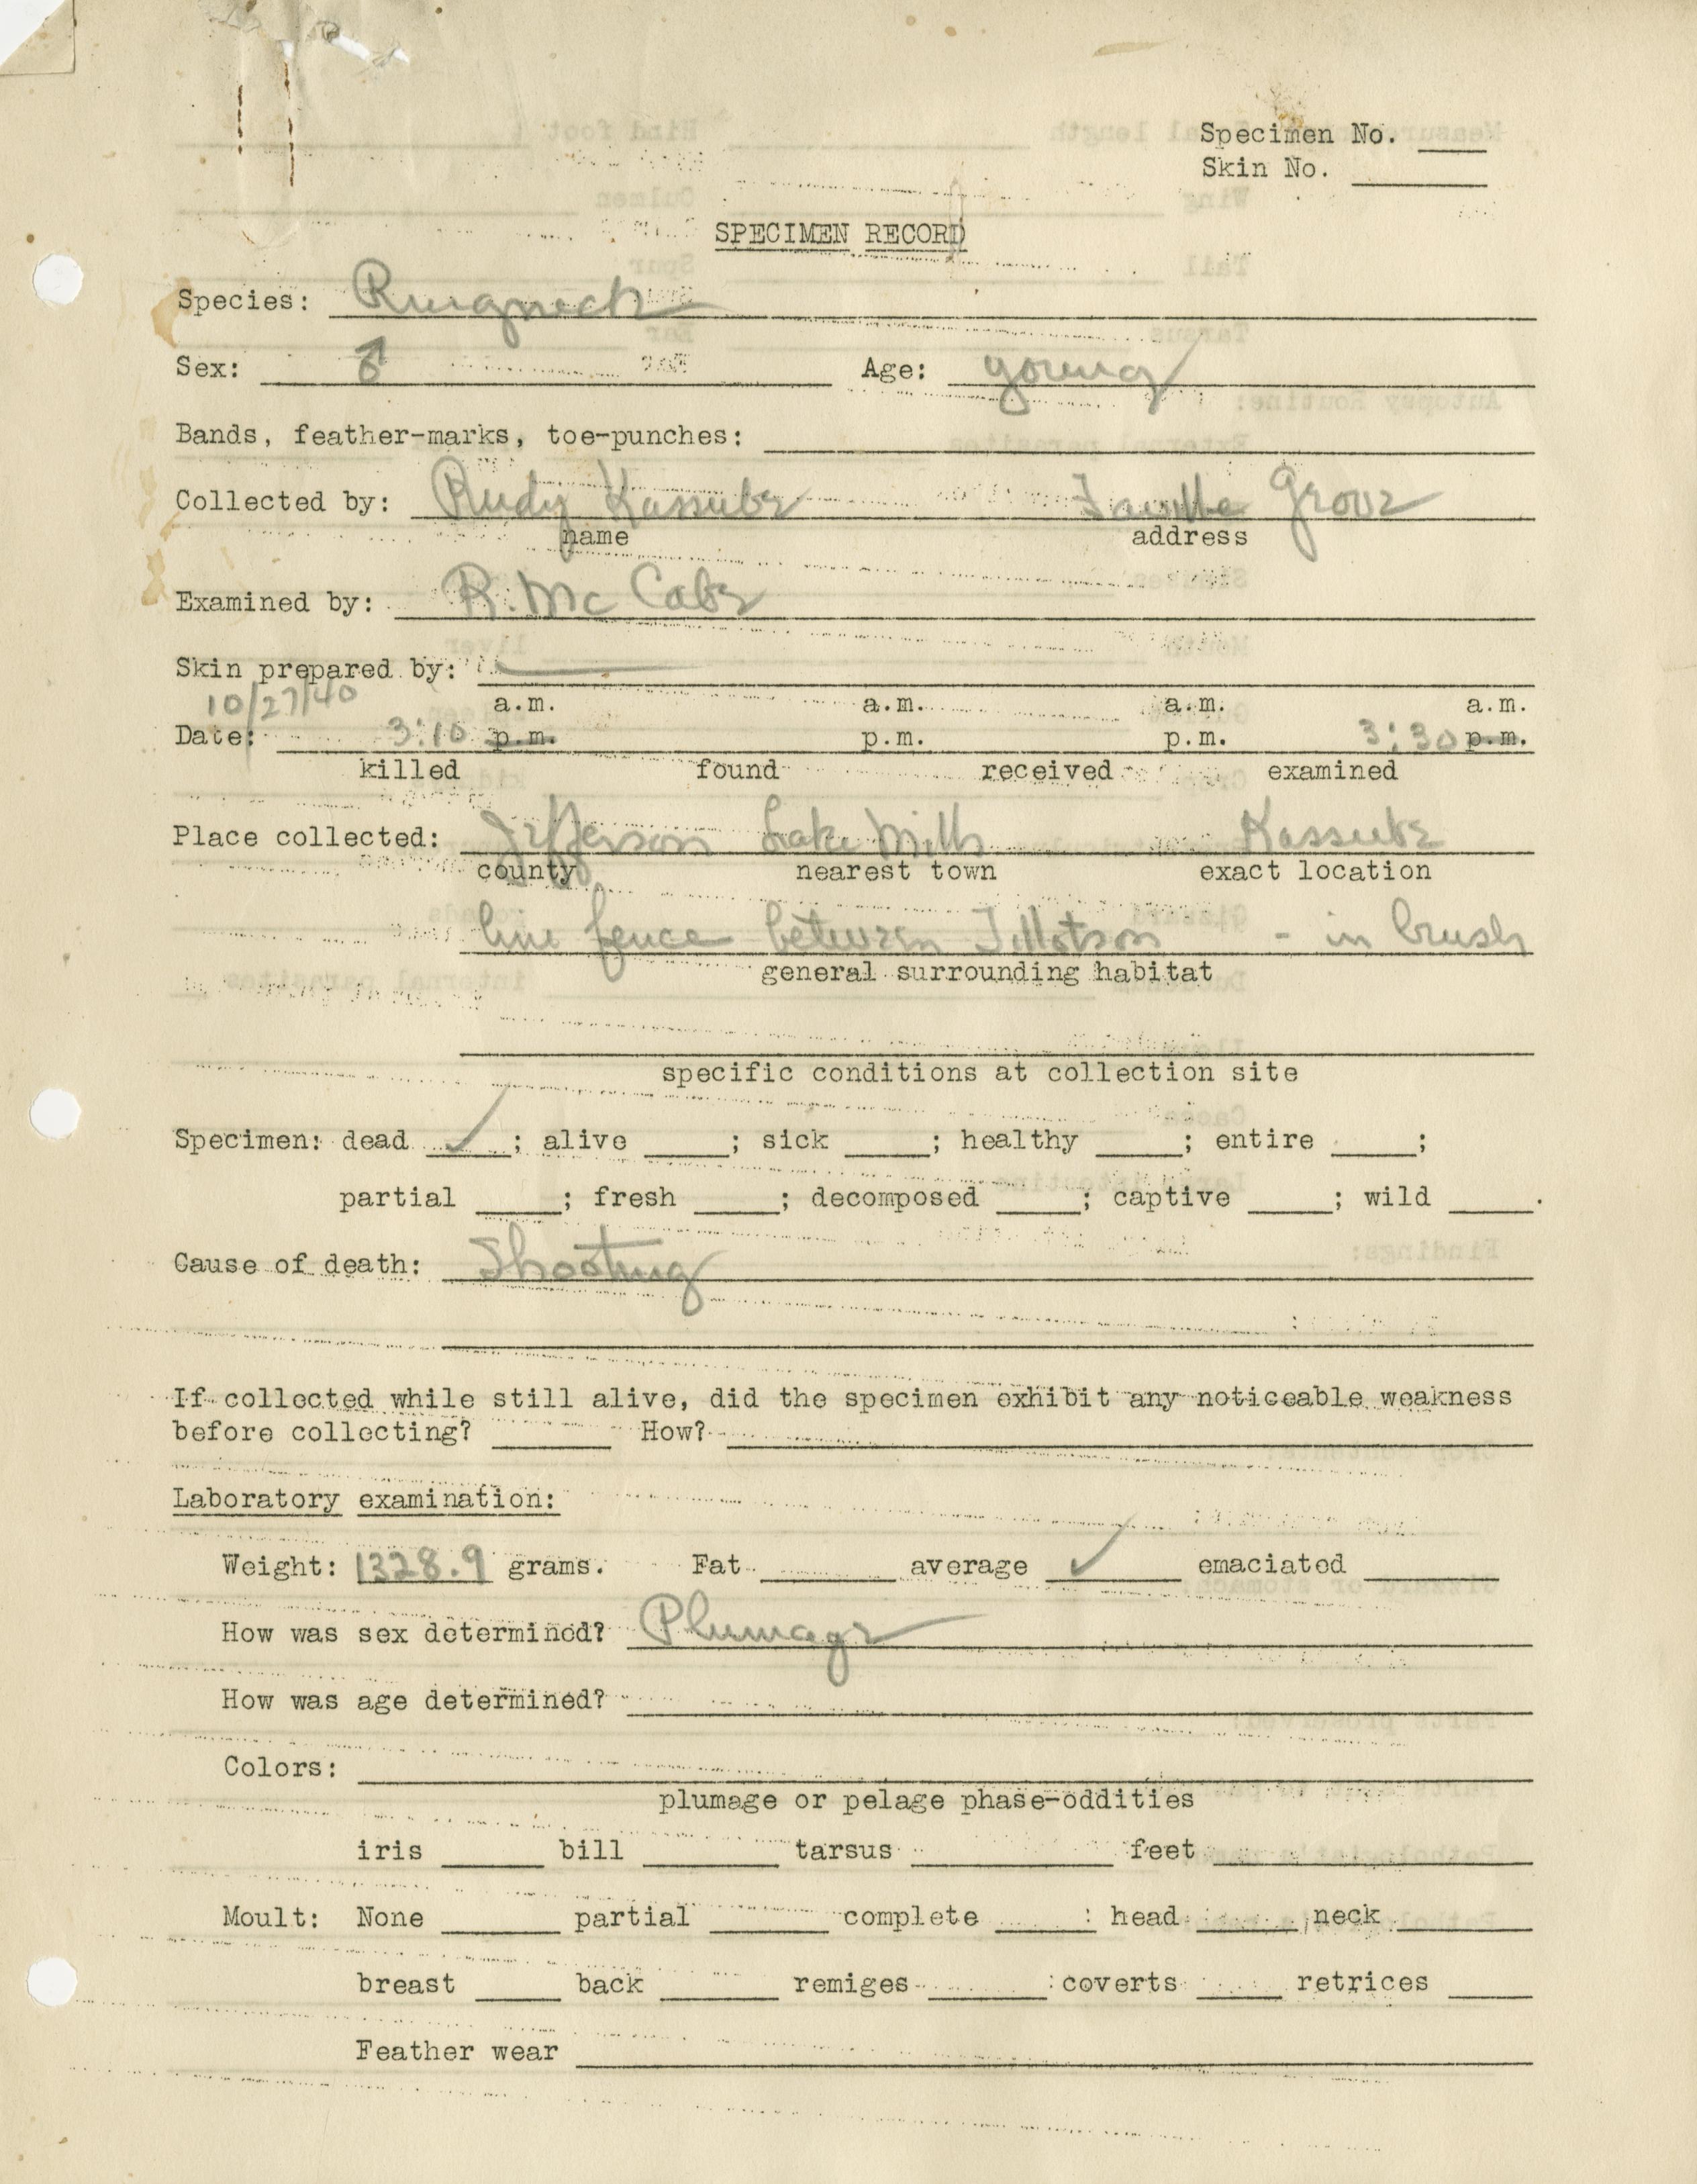 Specimen No. ____
Skin No. ____
SPECIMEN RECORD
Species: Ringneck
Sex: ♂ Age: young
Bands, feather-marks, toe-punches: ____
Collected by: Rudy Kassube Faville Grove
name address
Examined by: R. McCabe
Skin prepared by: —
10/27/40 a.m. a.m. a.m. a.m.
Date: 3:10 p.m. p.m. p.m. 3:30 p.m.
killed found received examined
Place collected: Jefferson Lake Mills Kassube
county nearest town exact location
line fence between Tillotson - in brush
general surrounding habitat
specific conditions at collection site
Specimen: dead ✓; alive ____; sick ____; healthy ____; entire ____;
partial ____; fresh ____; decomposed ____; captive ____; wild ____.
Cause of death: Shooting
If collected while still alive, did the specimen exhibit any noticeable weakness
before collecting? ____ How? ____
Laboratory examination:
Weight: 1328.9 grams. Fat ____ average ✓ emaciated ____
How was sex determined? Plumage
How was age determined? ____
Colors: ____
plumage or pelage phase-oddities
iris ____ bill ____ tarsus ____ feet ____
Moult: None ____ partial ____ complete ____: head ____ neck ____
breast ____ back ____ remiges ____ coverts ____ retrices ____
Feather wear ____